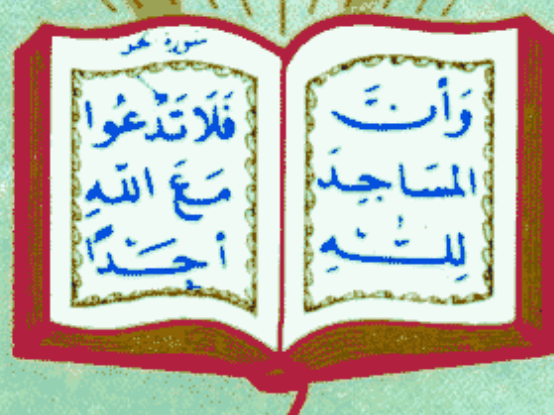 سورة
وَأَنَّ
المَسَاجِدَ
لِلّٰهِ
فَلَا تَدْعُوا
مَعَ اللّهِ
أحَدًا